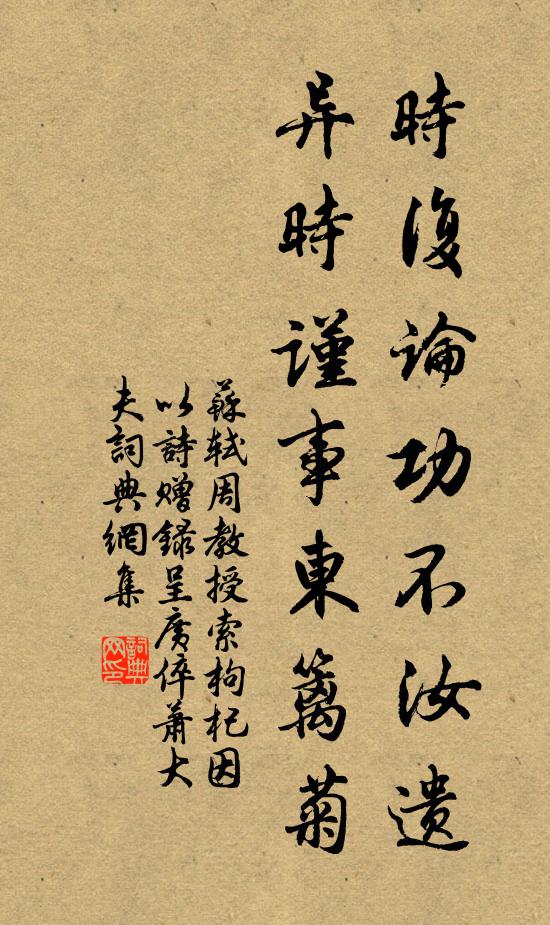 時復論功不汝遺
异時謹事東籬菊
蘇軾周教授索枸杞因
以詩贈録呈廣倅蕭大
夫詞典網集
詞典
网印